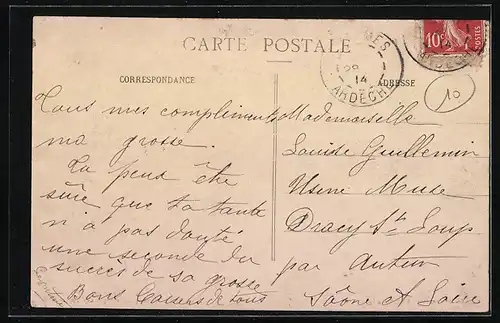 CARTE POSTALE
CORRESPONDANCE
ADRESSE
ARDECHE
14
10c
POSTES
10
Tous mes compliments
ma grosse.
Tu peux être
sûre que ta tante
n'a pas douté
une seconde du
succès de sa grosse
Bons de tous
Mademoiselle
Louise Guillemin
Usine Muse
Dracy St Loup
par Autun
Saône et Loire